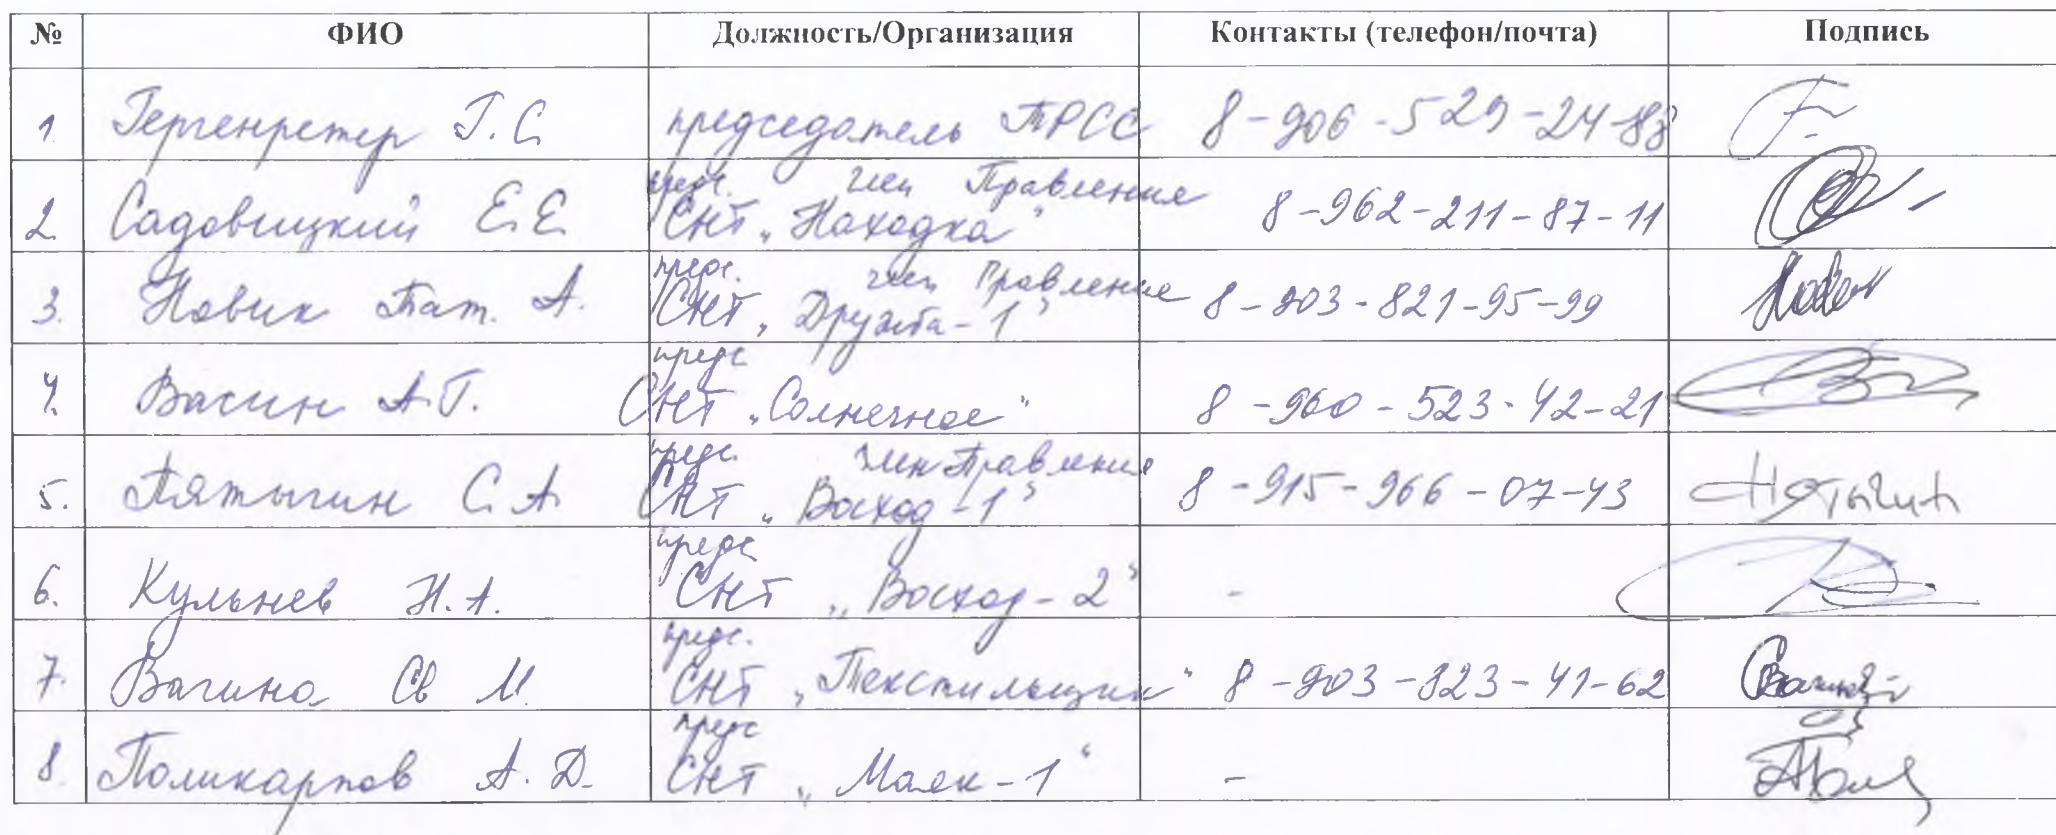 № ФИО Должность/Организация Контакты (телефон/почта) Подпись
1. Гергенретер Г.С. председатель ТРСС 8-906-529-24-88
2. Садовщикий Е.Е. предс. член Правления
СНТ „Находка“ 8-962-211-87-11
3. Новик Тат. А. предс. член Правления
СНТ „Дружба-1“ 8-903-821-95-99 Новик
4. Васин А.Г. предс
СНТ „Солнечное“ 8-960-523-42-21
5. Пятыгин С.А. предс. член Правления
СНТ „Восход-1“ 8-915-966-07-43 Пятыгин
6. Кульнев Н.А. предс
СНТ „Восход-2“ -
7. Вагина Св М. предс.
СНТ „Текстильщик“ 8-903-823-41-62
8. Поликарпов А.Д. предс
СНТ „Маяк-1“ -